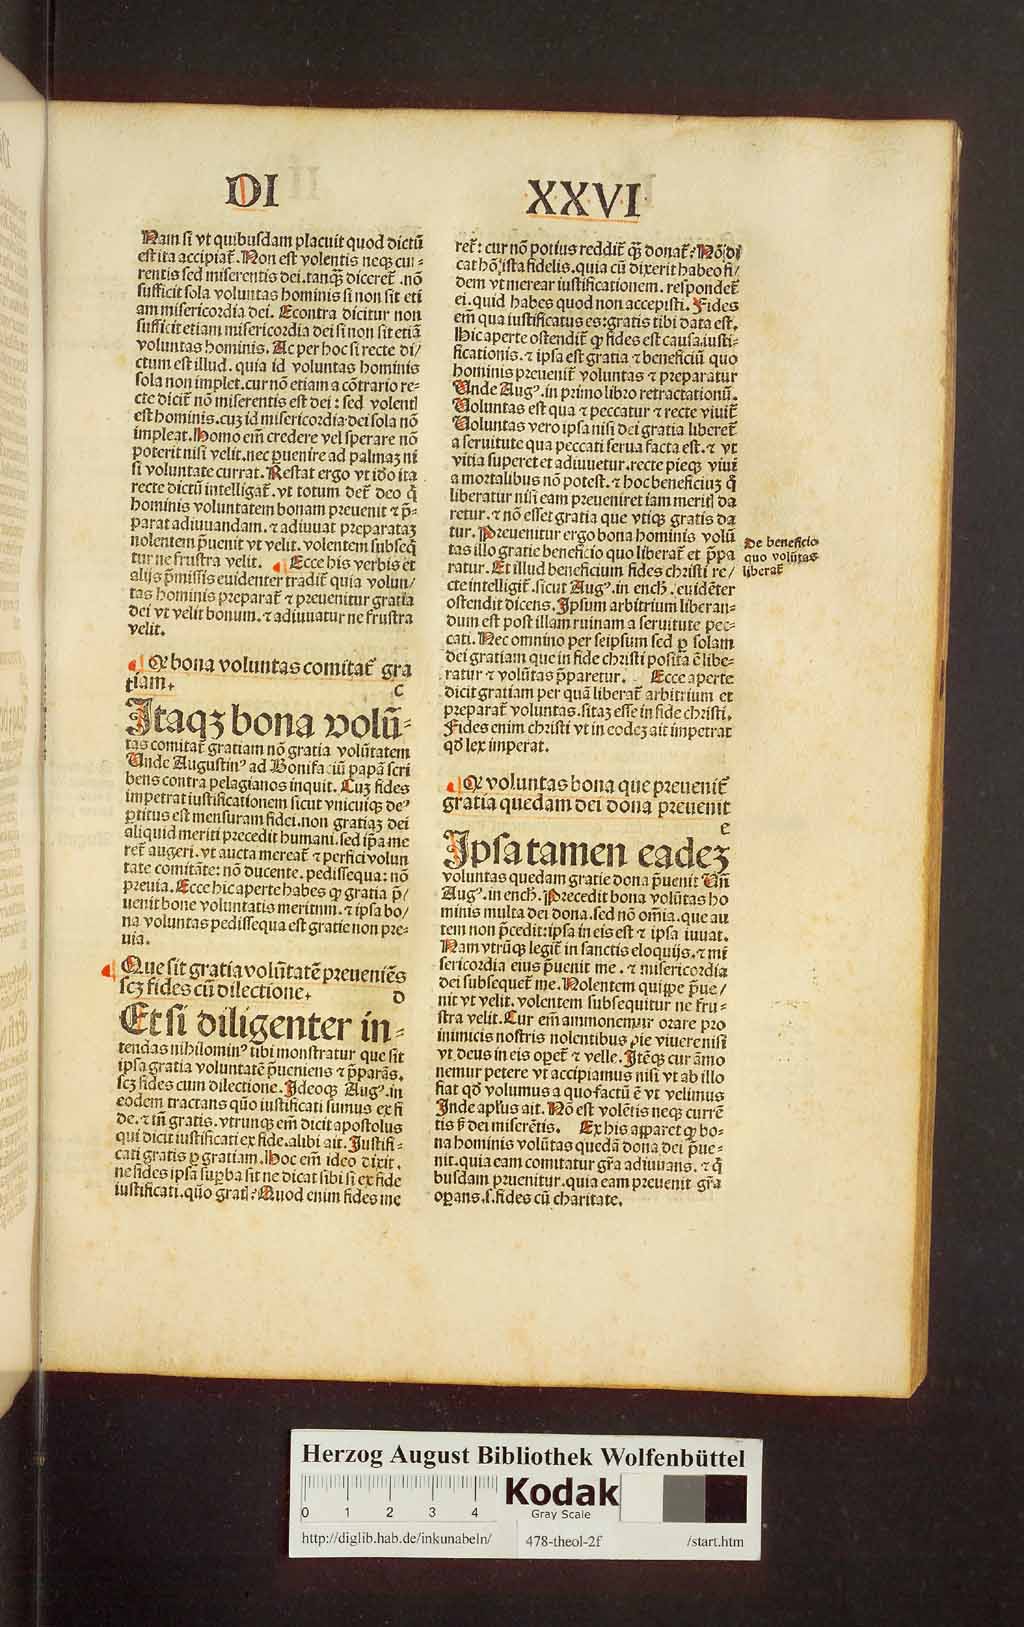 DI XXVI
Nam si vt quibusdam placuit quod dictũ
est ita accipiat̃. Non est volentis neqȝ cur-
rentis sed miserentis dei. tanqȝ diceret̃. nõ
sufficit sola voluntas hominis si non sit eti
am misericordia dei. Econtra dicitur non
sufficit etiam misericordia dei si non sit etiã
voluntas hominis. Ac per hoc si recte di/
ctum est illud. quia id voluntas hominis
sola non implet. cur nõ etiam a cõtrario re-
cte dicit̃ nõ miserentis est dei: sed volentꝭ
est hominis. cuȝ id misericordia dei sola nõ
impleat. Homo em̃ credere vel sperare nõ
poterit nisi velit. nec ꝑuenire ad palmaȝ ni
si voluntate currat. Restat ergo vt ideo ita
recte dictũ intelligat̃. vt totum det̃ deo q̇
hominis voluntatem bonam preuenit ⁊ p̃-
parat adiuuandam. ⁊ adiuuat preparataȝ
nolentem p̃uenit vt velit. volentem subseq̇
tur ne frustra velit. ¶ Ecce his verbis et
alijs p̃missis euidenter tradit̃ quia volun/
tas hominis preparat̃ ⁊ preuenitur gratia
dei vt velit bonum. ⁊ adiuuatur ne frustra
velit.
¶ Qꝙ bona voluntas comitat̃ gra
tiam. C
Itaqȝ bona volũ-
tas comitat̃ gratiam nõ gratia volũtatem
Unde Augustin⁹ ad Bonifaciũ papã scri
bens contra pelagianos inquit. Cuȝ fides
impetrat iustificationem sicut vnicuiqȝ de⁹
ꝑtitus est mensuram fidei. non gratiaȝ dei
aliquid meriti precedit humani. sed ip̃a me
ret̃ augeri. vt aucta mereat̃ ⁊ perfici volun
tate comitãte: nõ ducente. pedissequa: nõ
preuia. Ecce hic aperte habes ꝙ gratia p̃/
uenit bone voluntatis meritum. ⁊ ipsa bo/
na voluntas pedissequa est gratie non pre-
uia.
¶ Que sit gratia volũtatẽ preueniẽs
scȝ fides cũ dilectione. D
Et si diligenter in-
tendas nihilomin⁹ tibi monstratur que sit
ipsa gratia voluntatẽ p̃ueniens ⁊ p̃parãs.
scȝ fides cum dilectione. Ideoqȝ Aug⁹. in
eodem tractans quõ iustificati sumus ex fi
de. ⁊ tñ gratis. vtrunqȝ em̃ dicit apostolus
qui dicit iustificati ex fide. alibi ait. Iustifi-
cati gratis ꝑ gratiam. Hoc em̃ ideo dixit.
ne fides ipsa suꝑba sit ne dicat sibi si ex fide
iustificati. quõ gratꝭ? Quod enim fides me
ret̃: cur nõ potius reddit̃ qȝ donat̃? Nõ di
cat hõ ista fidelis. quia cũ dixerit habeo fi/
dem vt merear iustificationem. respondet̃
ei. quid habes quod non accepisti. Fides
em̃ qua iustificatus es: gratis tibi data est.
Hic aperte ostendit̃ ꝙ fides est causa iusti-
ficationis. ⁊ ipsa est gratia ⁊ beneficiũ quo
hominis preuenit̃ voluntas ⁊ preparatur
Unde Aug⁹. in primo libro retractationũ.
Voluntas est qua ⁊ peccatur ⁊ recte viuit̃
Voluntas vero ipsa nisi dei gratia liberet̃
a seruitute qua peccati serua facta est. ⁊ vt
vitia superet et adiuuetur. recte pieqȝ viui
a mortalibus nõ potest. ⁊ hoc beneficiuȝ q̇
liberatur nisi eam preueniret iam meritꝭ da
retur. ⁊ nõ esset gratia que vtiqȝ gratis da
tur. Preuenitur ergo bona hominis volũ
tas illo gratie beneficio quo liberat̃ et p̃pa
ratur. Et illud beneficium fides christi re/
cte intelligit̃. sicut Aug⁹. in ench. euidẽter
ostendit dicens. Ipsum arbitrium liberan-
dum est post illam ruinam a seruitute pec-
cati. Nec omnino per seipsum sed ꝑ solam
dei gratiam que in fide christi posita ẽ libe-
ratur ⁊ volũtas p̃paretur. Ecce aperte
dicit gratiam per quã liberat̃ arbitrium et
preparat̃ voluntas. sitaȝ esse in fide christi.
Fides enim christi vt in eodeȝ ait impetrat
qď lex imperat.
De beneficio
quo volũtas
liberat̃
¶ Qꝙ voluntas bona que preuenit̃
gratia quedam dei dona preuenit
E
Ipsa tamen eadeȝ
voluntas quedam gratie dona p̃uenit Uñ
Aug⁹. in ench. Precedit bona volũtas ho
minis multa dei dona. sed nõ om̃ia. que au
tem non p̃cedit: ipsa in eis est ⁊ ipsa iuuat.
Nam vtrũqȝ legit̃ in sanctis eloquijs. ⁊ mi
sericordia eius p̃uenit me. ⁊ misericordia
dei subsequet̃ me. Nolentem quippe p̃ue/
nit vt velit. volentem subsequitur ne fru-
stra velit. Cur em̃ ammonemur orare pro
inimicis nostris nolentibus pie viuere nisi
vt deus in eis oꝑet̃ ⁊ velle. Itẽqȝ cur ãmo
nemur petere vt accipiamus nisi vt ab illo
fiat qď volumus a quo factũ ẽ vt velimus
Inde apl̃us ait. Nõ est volẽtis neqȝ currẽ
tis sꝫ dei miserẽtis. Ex his apparet ꝙ bo-
na hominis volũtas quedã dona dei p̃ue-
nit. quia eam comitatur gr̃a adiuuans. ⁊ q̇
busdam pruenitur. quia eam preuenit gr̃a
oꝑans. s. fides cũ charitate.
Herzog August Bibliothek Wolfenbüttel
0 1 2 3 4
Kodak
Gray Scale
http://diglib.hab.de/inkunabeln/ 478-theol-2f /start.htm